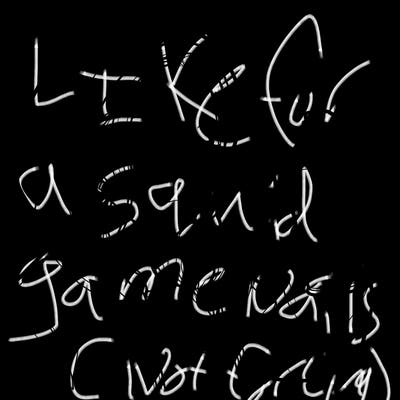 LIKe for
a squid
game Nails
(Not